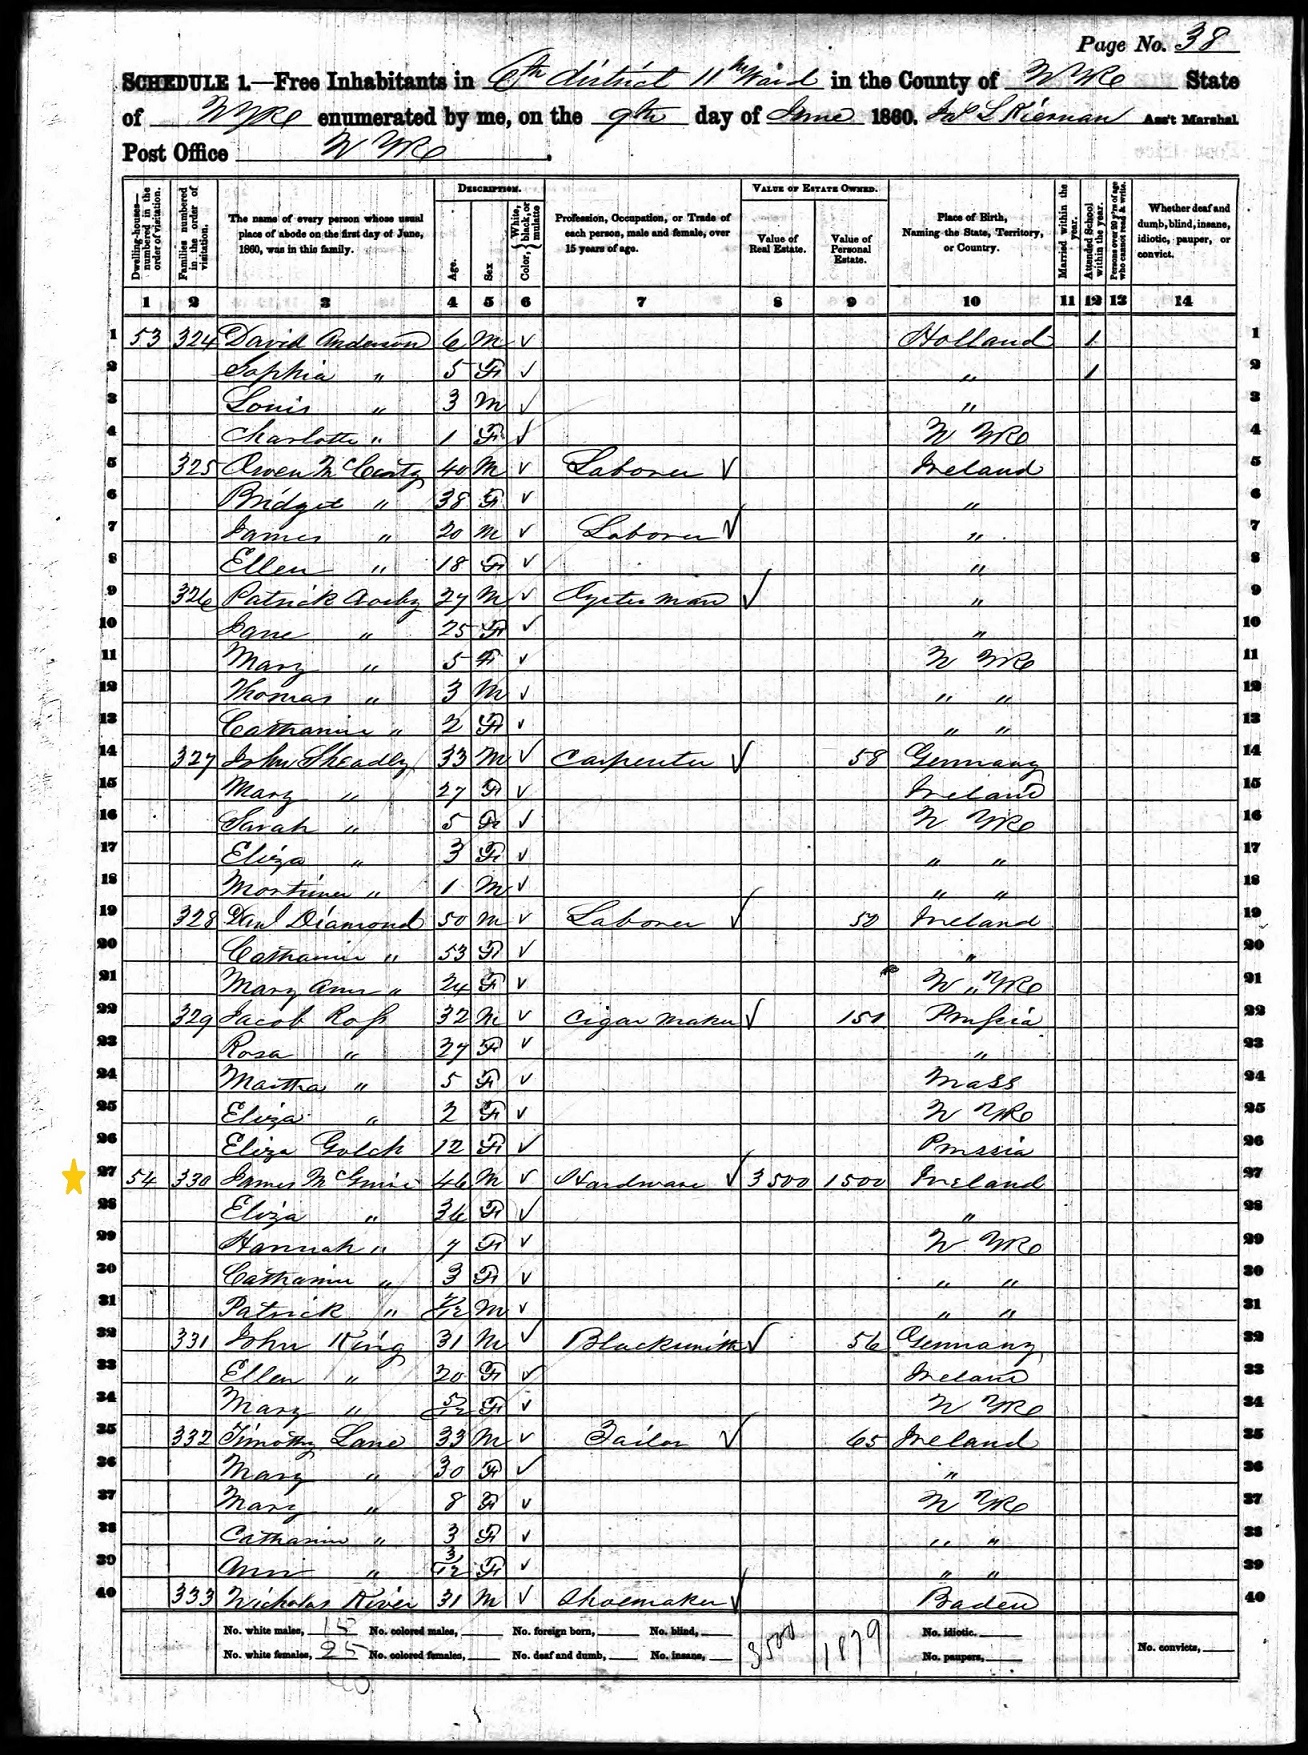 Page No. 38
SCHEDULE 1.—Free Inhabitants in 6th district 11th Ward in the County of N York State
of N York enumerated by me, on the 9th day of June 1860. Jno L Kiernan Ass't Marshal
Post Office N York.
DESCRIPTION. VALUE OF ESTATE OWNED.
Dwelling-houses—numbered in the order of visitation. Families numbered in the order of visitation. The name of every person whose usual place of abode on the first day of June, 1860, was in this family. Age. Sex Color, White, black, or mulatto Profession, Occupation, or Trade of each person, male and female, over 15 years of age. Value of Real Estate. Value of Personal Estate. Place of Birth, Naming the State, Territory, or Country. Married within the year. Attended School within the year. Persons over 20 y'rs of age who cannot read & write. Whether deaf and dumb, blind, insane, idiotic, pauper, or convict.
1 2 3 4 5 6 7 8 9 10 11 12 13 14
1 53 324 David Anderson 6 M ✓ Holland 1 1
2 Sophia " 5 F ✓ " 1 2
3 Louis " 3 M ✓ " 3
4 Charlotte " 1 F ✓ N York 4
5 325 Owen McCarty 40 M ✓ Laborer ✓ Ireland 5
6 Bridget " 38 F ✓ " 6
7 James " 20 M ✓ Laborer ✓ " 7
8 Ellen " 18 F ✓ " 8
9 326 Patrick 27 M ✓ Oysterman ✓ " 9
10 Jane " 25 F ✓ " 10
11 Mary " 5 F ✓ N York 11
12 Thomas " 3 M ✓ " " 12
13 Catharine " 2 F ✓ " " 13
14 327 John Sheadly 33 M ✓ Carpenter ✓ 58 Germany 14
15 Mary " 27 F ✓ Ireland 15
16 Sarah " 5 F ✓ N York 16
17 Eliza " 3 F ✓ " " 17
18 Mortimer " 1 M ✓ " " 18
19 328 Danl Diamond 50 M ✓ Laborer ✓ 50 Ireland 19
20 Catharine " 53 F ✓ " 20
21 Mary Ann " 24 F ✓ N " York 21
22 329 Jacob Ross 32 M ✓ Cigar maker ✓ 150 Prussia 22
23 Rosa " 27 F ✓ " 23
24 Martha " 5 F ✓ Mass 24
25 Eliza " 2 F ✓ N York 25
26 Eliza Golch 12 F ✓ Prussia 26
27 54 330 James McGuire 46 M ✓ Hardware ✓ 3500 1500 Ireland 27
28 Eliza " 36 F ✓ " 28
29 Hannah " 7 F ✓ N York 29
30 Catharine " 3 F ✓ " " 30
31 Patrick " M ✓ " " 31
32 331 John King 31 M ✓ Blacksmith ✓ 56 Germany 32
33 Ellen " 20 F ✓ Ireland 33
34 Mary " 5/12 F ✓ N York 34
35 332 Timothy Lane 33 M ✓ Tailor ✓ 65 Ireland 35
36 Mary " 30 F ✓ " 36
37 Mary " 8 F ✓ N York 37
38 Catharine " 3 F ✓ " " 38
39 Ann " 3/12 F ✓ " " 39
40 333 Nicholas River 31 M ✓ Shoemaker ✓ Baden 40
No. white males, 15 No. colored males, No. foreign born, No. blind, 3500 1879 No. idiotic. No. convicts,
No. white females, 25 No. colored females, No. deaf and dumb, No. insane, No. paupers,
40